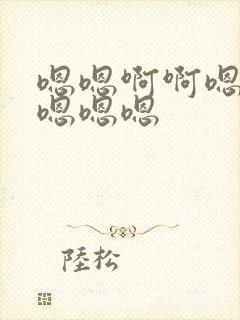 嗯嗯啊啊嗯
嗯嗯嗯
陸松